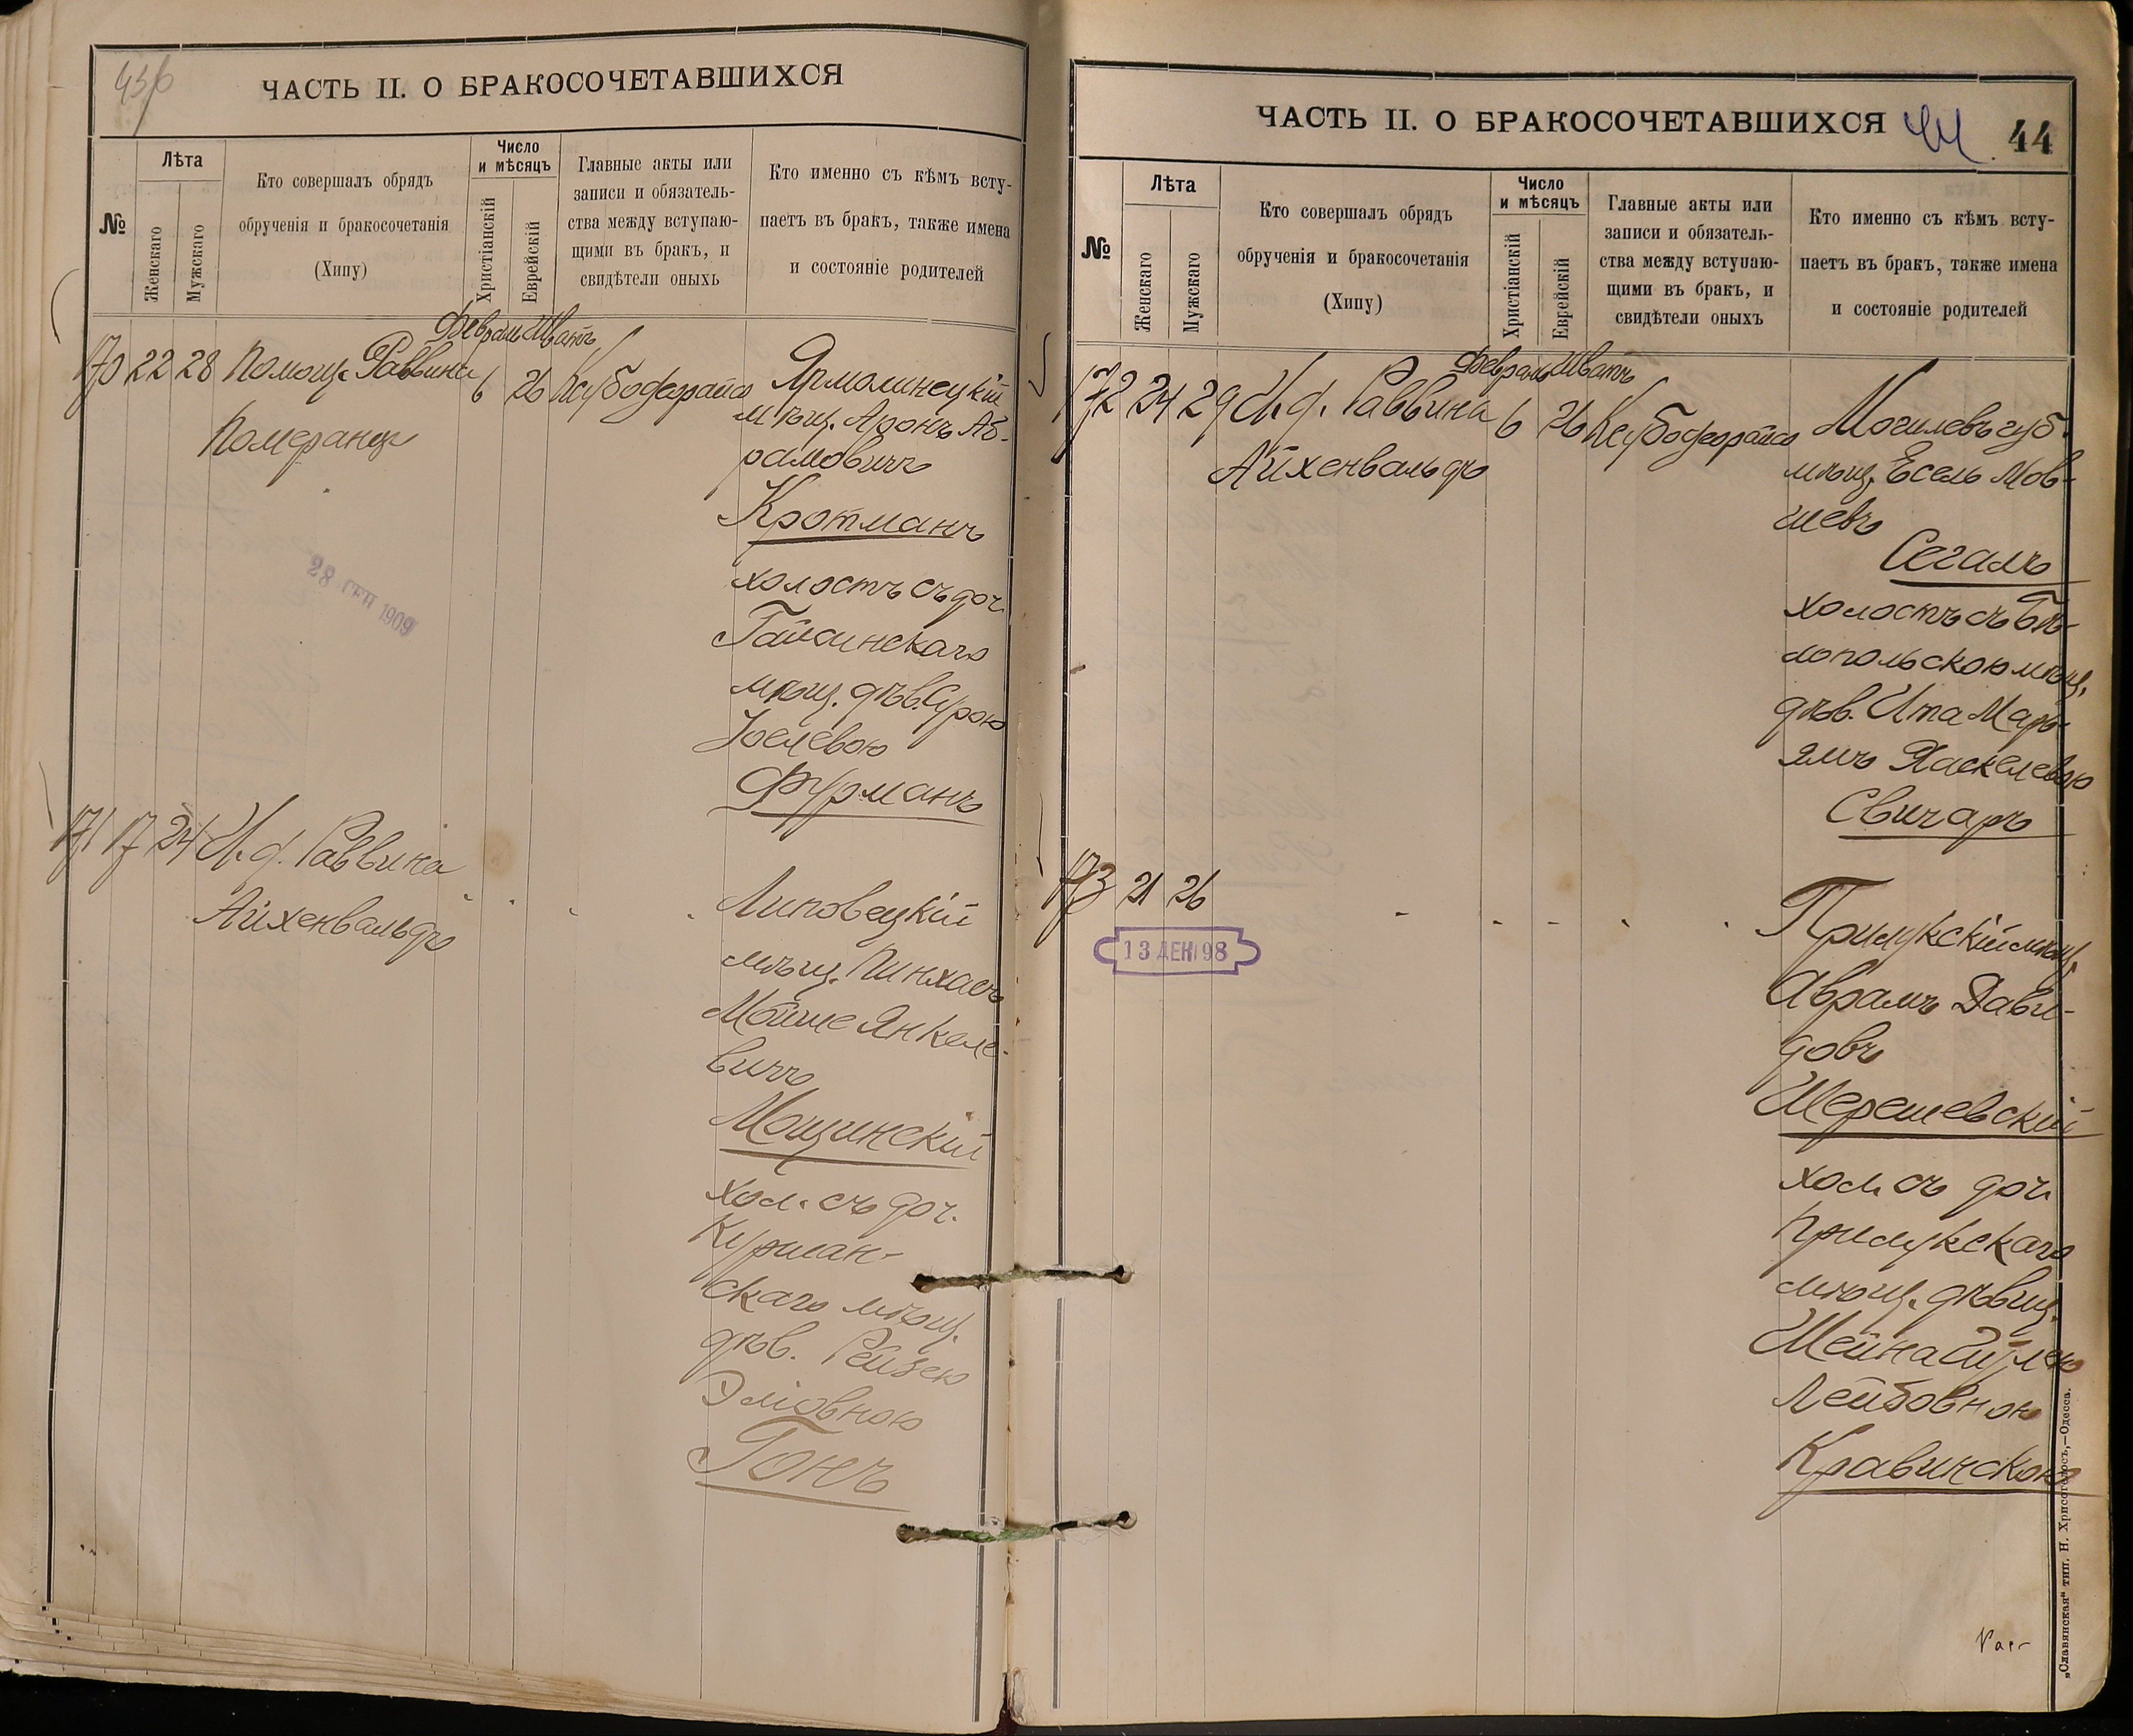 43б
ЧАСТЬ II. О БРАКОСОЧЕТАВШИХСЯ
№
Лѣта
Женскаго
Мужскаго
Кто совершалъ обрядъ
обрученія и бракосочетанія
(Хипу)
Число
и мѣсяцъ
Христіанскій
Еврейскій
Главные акты или
записи и обязатель-
ства между вступаю-
щими въ бракъ, и
свидѣтели оныхъ
Кто именно съ кѣмъ всту-
паетъ въ бракъ, также имена
и состояніе родителей
Февраль Шватъ
170 22 28 Помощ. Раввина 6 26 Ксубо ферайса Ярмолинецкій
Померанцъ
мѣщ. Аронъ Аб-
рамовичъ
Кротманъ
28 СЕН 1909
холостъ съ доч.
Гайсинскаго
мѣщ. дѣв. Сурою
Іоелевою
Фурманъ
171 17 24 И. д. Раввина
Айхенвальдъ
Липовецкій
мѣщ. Пинхасъ
Мойше Янкеле-
вичъ
Мощинскій
хол. съ доч.
Курилан-
скаго мѣщ.
дѣв. Рейзею
Эліовною
Гонъ
ЧАСТЬ II. О БРАКОСОЧЕТАВШИХСЯ 44 44
№
Лѣта
Женскаго
Мужскаго
Кто совершалъ обрядъ
обрученія и бракосочетанія
(Хипу)
Число
и мѣсяцъ
Христіанскій
Еврейскій
Главные акты или
записи и обязатель-
ства между вступаю-
щими въ бракъ, и
свидѣтели оныхъ
Кто именно съ кѣмъ всту-
паетъ въ бракъ, также имена
и состояніе родителей
Февраль Шватъ
172 24 29 И. д. Раввина 6 26 Ксубо ферайса Могилевъ губ.
Айхенвальдъ
мѣщ. Есель Мов-
шевъ
Сегалъ
холостъ съ Бѣ-
лопольскою мѣщ.
дѣв. Ита Марь-
ямъ Хаскелевою
Свичаръ
173 21 26
13 ДЕК 98
Прилукскій мѣщ.
Аврамъ Дави-
довъ
Шерешевскій
хол. съ доч.
Прилукскаго
мѣщ. дѣвиц.
Шейна
Лейбовною
Кравинскою
„Славянская“ тип. Н. Хрисогелосъ,—Одесса.